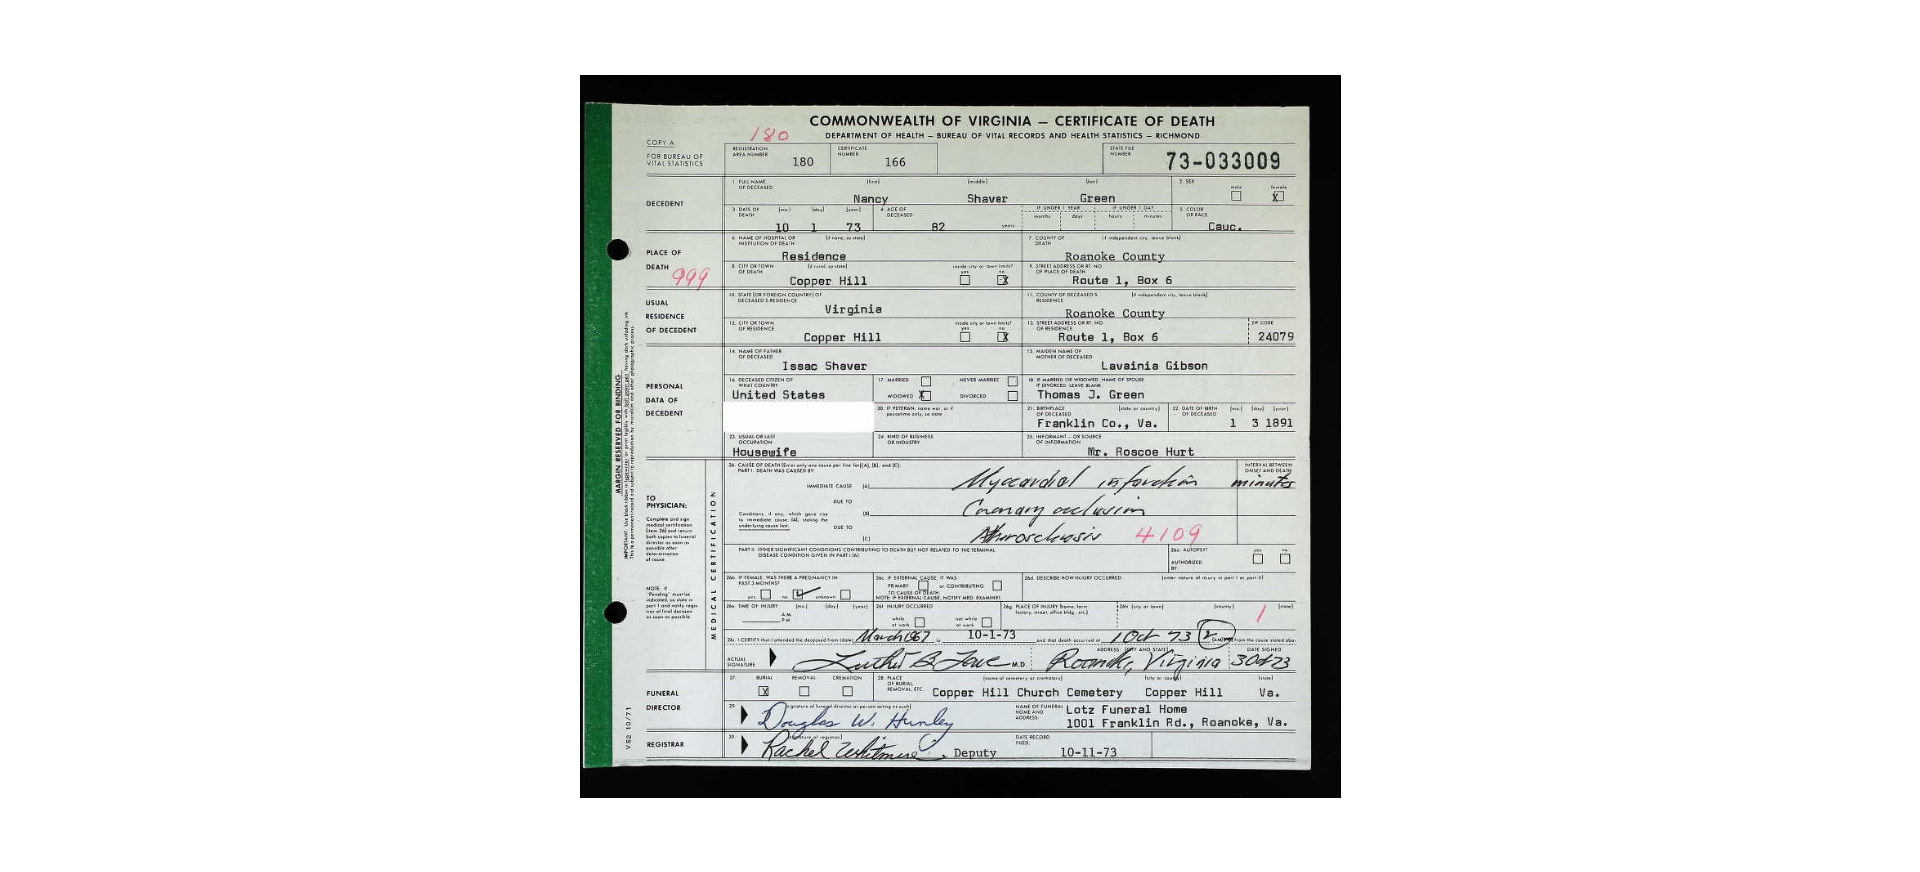 COMMONWEALTH OF VIRGINIA — CERTIFICATE OF DEATH
180
DEPARTMENT OF HEALTH — BUREAU OF VITAL RECORDS AND HEALTH STATISTICS — RICHMOND
COPY A
FOR BUREAU OF VITAL STATISTICS
REGISTRATION AREA NUMBER 180 CERTIFICATE NUMBER 166 STATE FILE NUMBER 73-033009
DECEDENT
1. FULL NAME OF DECEASED (first) (middle) (last) 2. SEX male female
Nancy Shaver Green X
3. DATE OF DEATH (mo.) (day) (year) 4. AGE OF DECEASED IF UNDER 1 YEAR IF UNDER 1 DAY 5. COLOR OR RACE
months days hours minutes
10 1 73 82 years Cauc.
PLACE OF DEATH 999
6. NAME OF HOSPITAL OR INSTITUTION OF DEATH (if none, so state) 7. COUNTY OF DEATH (if independent city, leave blank)
Residence Roanoke County
8. CITY OR TOWN OF DEATH (if rural, so state) inside city or town limits? yes no 9. STREET ADDRESS OR RT. NO. OF PLACE OF DEATH
Copper Hill X Route 1, Box 6
USUAL RESIDENCE OF DECEDENT
10. STATE (OR FOREIGN COUNTRY) OF DECEASED'S RESIDENCE 11. COUNTY OF DECEASED'S RESIDENCE (if independent city, leave blank)
Virginia Roanoke County
12. CITY OR TOWN OF RESIDENCE inside city or town limits? yes no 13. STREET ADDRESS OR RT. NO. OF RESIDENCE ZIP CODE
Copper Hill X Route 1, Box 6 24079
PERSONAL DATA OF DECEDENT
14. NAME OF FATHER OF DECEASED 15. MAIDEN NAME OF MOTHER OF DECEASED
Issac Shaver Lavainia Gibson
16. DECEASED CITIZEN OF WHAT COUNTRY 17. MARRIED NEVER MARRIED 18. IF MARRIED OR WIDOWED, NAME OF SPOUSE IF DIVORCED, LEAVE BLANK
United States WIDOWED X DIVORCED Thomas J. Green
20. IF VETERAN, name war, or if peacetime only, so state 21. BIRTHPLACE OF DECEASED (state or country) 22. DATE OF BIRTH OF DECEASED (mo.) (day) (year)
Franklin Co., Va. 1 3 1891
23. USUAL OR LAST OCCUPATION 24. KIND OF BUSINESS OR INDUSTRY 25. INFORMANT — OR SOURCE OF INFORMATION
Housewife Mr. Roscoe Hurt
MARGIN RESERVED FOR BINDING
MEDICAL CERTIFICATION
TO PHYSICIAN:
Complete and sign medical certification (item 26) and return both copies to funeral director as soon as possible after determination of cause.
NOTE: If "Pending" must be indicated, so state in part I and notify registrar of final decision as soon as possible.
26. CAUSE OF DEATH (Enter only one cause per line for (A), (B), and (C).
PART I. DEATH WAS CAUSED BY: INTERVAL BETWEEN ONSET AND DEATH
IMMEDIATE CAUSE (A) Myocardial infarction minutes
DUE TO
Conditions, if any, which gave rise to immediate cause (A), stating the underlying cause last. (B) Coronary occlusion
DUE TO
(C) Atherosclerosis 4109
PART II. OTHER SIGNIFICANT CONDITIONS CONTRIBUTING TO DEATH BUT NOT RELATED TO THE TERMINAL DISEASE CONDITION GIVEN IN PART I (A) 26a. AUTOPSY? yes no
AUTHORIZED BY:
26b. IF FEMALE, WAS THERE A PREGNANCY IN PAST 3 MONTHS? yes no unknown
26c. IF EXTERNAL CAUSE, IT WAS PRIMARY or CONTRIBUTING TO CAUSE OF DEATH
NOTE: IF EXTERNAL CAUSE, NOTIFY MED. EXAMINER
26d. DESCRIBE HOW INJURY OCCURRED (enter nature of injury in part I or part II)
26e. TIME OF INJURY (mo.) (day) (year) A.M. P.M.
26f. INJURY OCCURRED while at work not while at work
26g. PLACE OF INJURY (home, farm, factory, street, office bldg., etc.) 26h. (city or town) (county) (state)
1
26i. I CERTIFY that I attended the deceased from (date) March 1967 to 10-1-73 and that death occurred at 1 Oct 73 2 from the cause stated above
ACTUAL SIGNATURE M.D. ADDRESS (CITY AND STATE) Roanoke, Virginia DATE SIGNED
FUNERAL DIRECTOR
27. BURIAL X REMOVAL CREMATION 28. PLACE OF BURIAL, REMOVAL, ETC. (name of cemetery or crematory) (city or county) (state)
Copper Hill Church Cemetery Copper Hill Va.
29. (signature of funeral director or person acting as such) Douglas W. Hunley
NAME OF FUNERAL HOME AND ADDRESS: Lotz Funeral Home
1001 Franklin Rd., Roanoke, Va.
REGISTRAR
30. (signature of registrar) Rachel Whitmire Deputy DATE RECORD FILED: 10-11-73
VS2 10/71